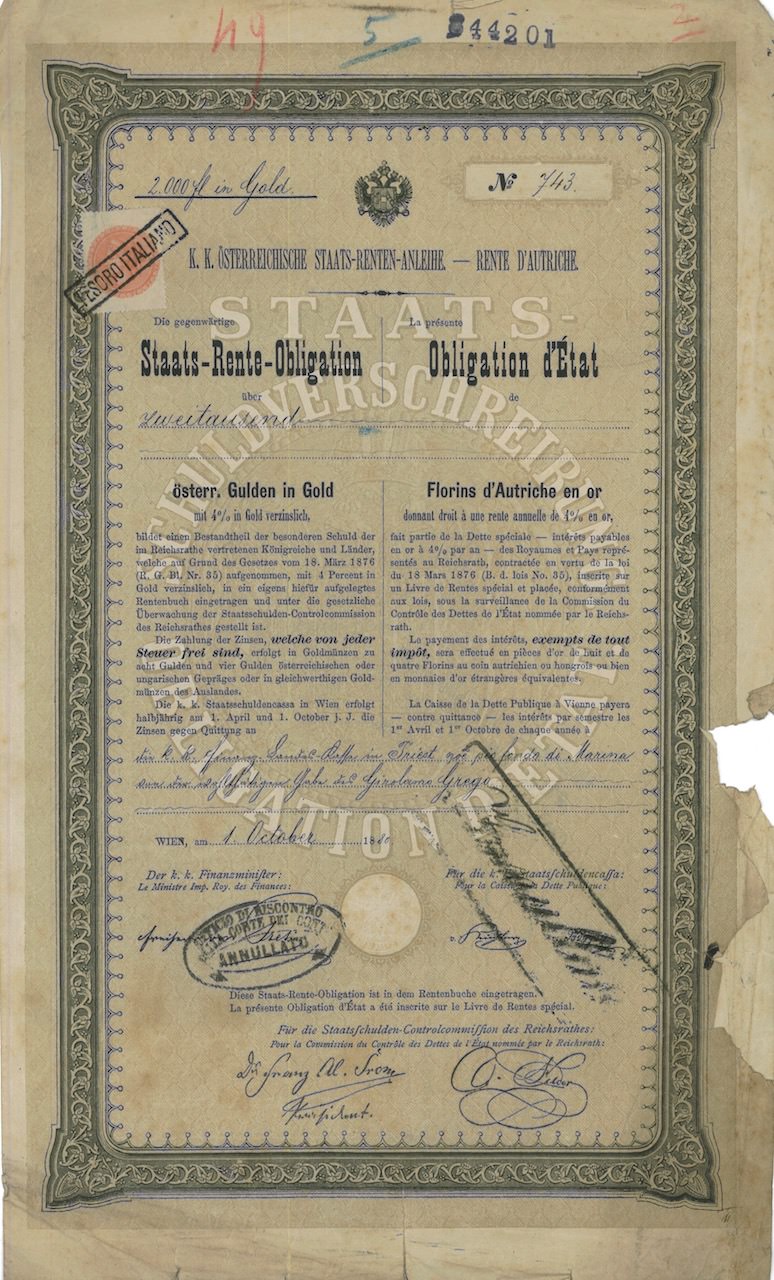 49
5
844201
2
2.000 fl in Gold.
№ 743.
TESORO ITALIANO
K. K. ÖSTERREICHISCHE STAATS-RENTEN-ANLEIHE. — RENTE D'AUTRICHE.
STAATS-
SCHULDVERSCHREIBUNG
OBLIGATION DE L'ÉTAT
Die gegenwärtige
Staats-Rente-Obligation
über
zweitausend
österr. Gulden in Gold
mit 4% in Gold verzinslich,
bildet einen Bestandtheil der besonderen Schuld der
im Reichsrathe vertretenen Königreiche und Länder,
welche auf Grund des Gesetzes vom 18. März 1876
(R. G. Bl. Nr. 35) aufgenommen, mit 4 Percent in
Gold verzinslich, in ein eigens hiefür aufgelegtes
Rentenbuch eingetragen und unter die gesetzliche
Überwachung der Staatsschulden-Controlcommission
des Reichsrathes gestellt ist.
Die Zahlung der Zinsen, welche von jeder
Steuer frei sind, erfolgt in Goldmünzen zu
acht Gulden und vier Gulden österreichischen oder
ungarischen Gepräges oder in gleichwerthigen Gold-
münzen des Auslandes.
Die k. k. Staatsschuldencassa in Wien erfolgt
halbjährig am 1. April und 1. October j. J. die
Zinsen gegen Quittung an
La présente
Obligation d'État
de
Florins d'Autriche en or
donnant droit à une rente annuelle de 4% en or,
fait partie de la Dette spéciale — intérêts payables
en or à 4% par an — des Royaumes et Pays repré-
sentés au Reichsrath, contractée en vertu de la loi
du 18 Mars 1876 (B. d. lois No. 35), inscrite sur
un Livre de Rentes spécial et placée, conformément
aux lois, sous la surveillance de la Commission du
Contrôle des Dettes de l'État nommée par le Reichs-
rath.
Le payement des intérêts, exempts de tout
impôt, sera effectué en pièces d'or de huit et de
quatre Florins au coin autrichien ou hongrois ou bien
en monnaies d'or étrangères équivalentes.
La Caisse de la Dette Publique à Vienne payera
— contre quittance — les intérêts par semestre les
1er Avril et 1er Octobre de chaque année à
die k. k. Finanz Landes Kasse in Triest pio fondo di Marina
Gabe des Girolamo Grego
WIEN, am 1. October 1880
Der k. k. Finanzminister:
Le Ministre Imp. Roy. des Finances:
Für die k. k. Staatsschuldencassa:
Pour la Caisse de la Dette Publique:
UFFICIO DI RISCONTRO
CORTE DEI CONTI
ANNULLATO
Diese Staats-Rente-Obligation ist in dem Rentenbuche eingetragen.
La présente Obligation d'État a été inscrite sur le Livre de Rentes spécial.
Für die Staatsschulden-Controlcommission des Reichsrathes:
Pour la Commission du Contrôle des Dettes de l'État nommée par le Reichsrath:
Dr Franz Al.
Präsident.